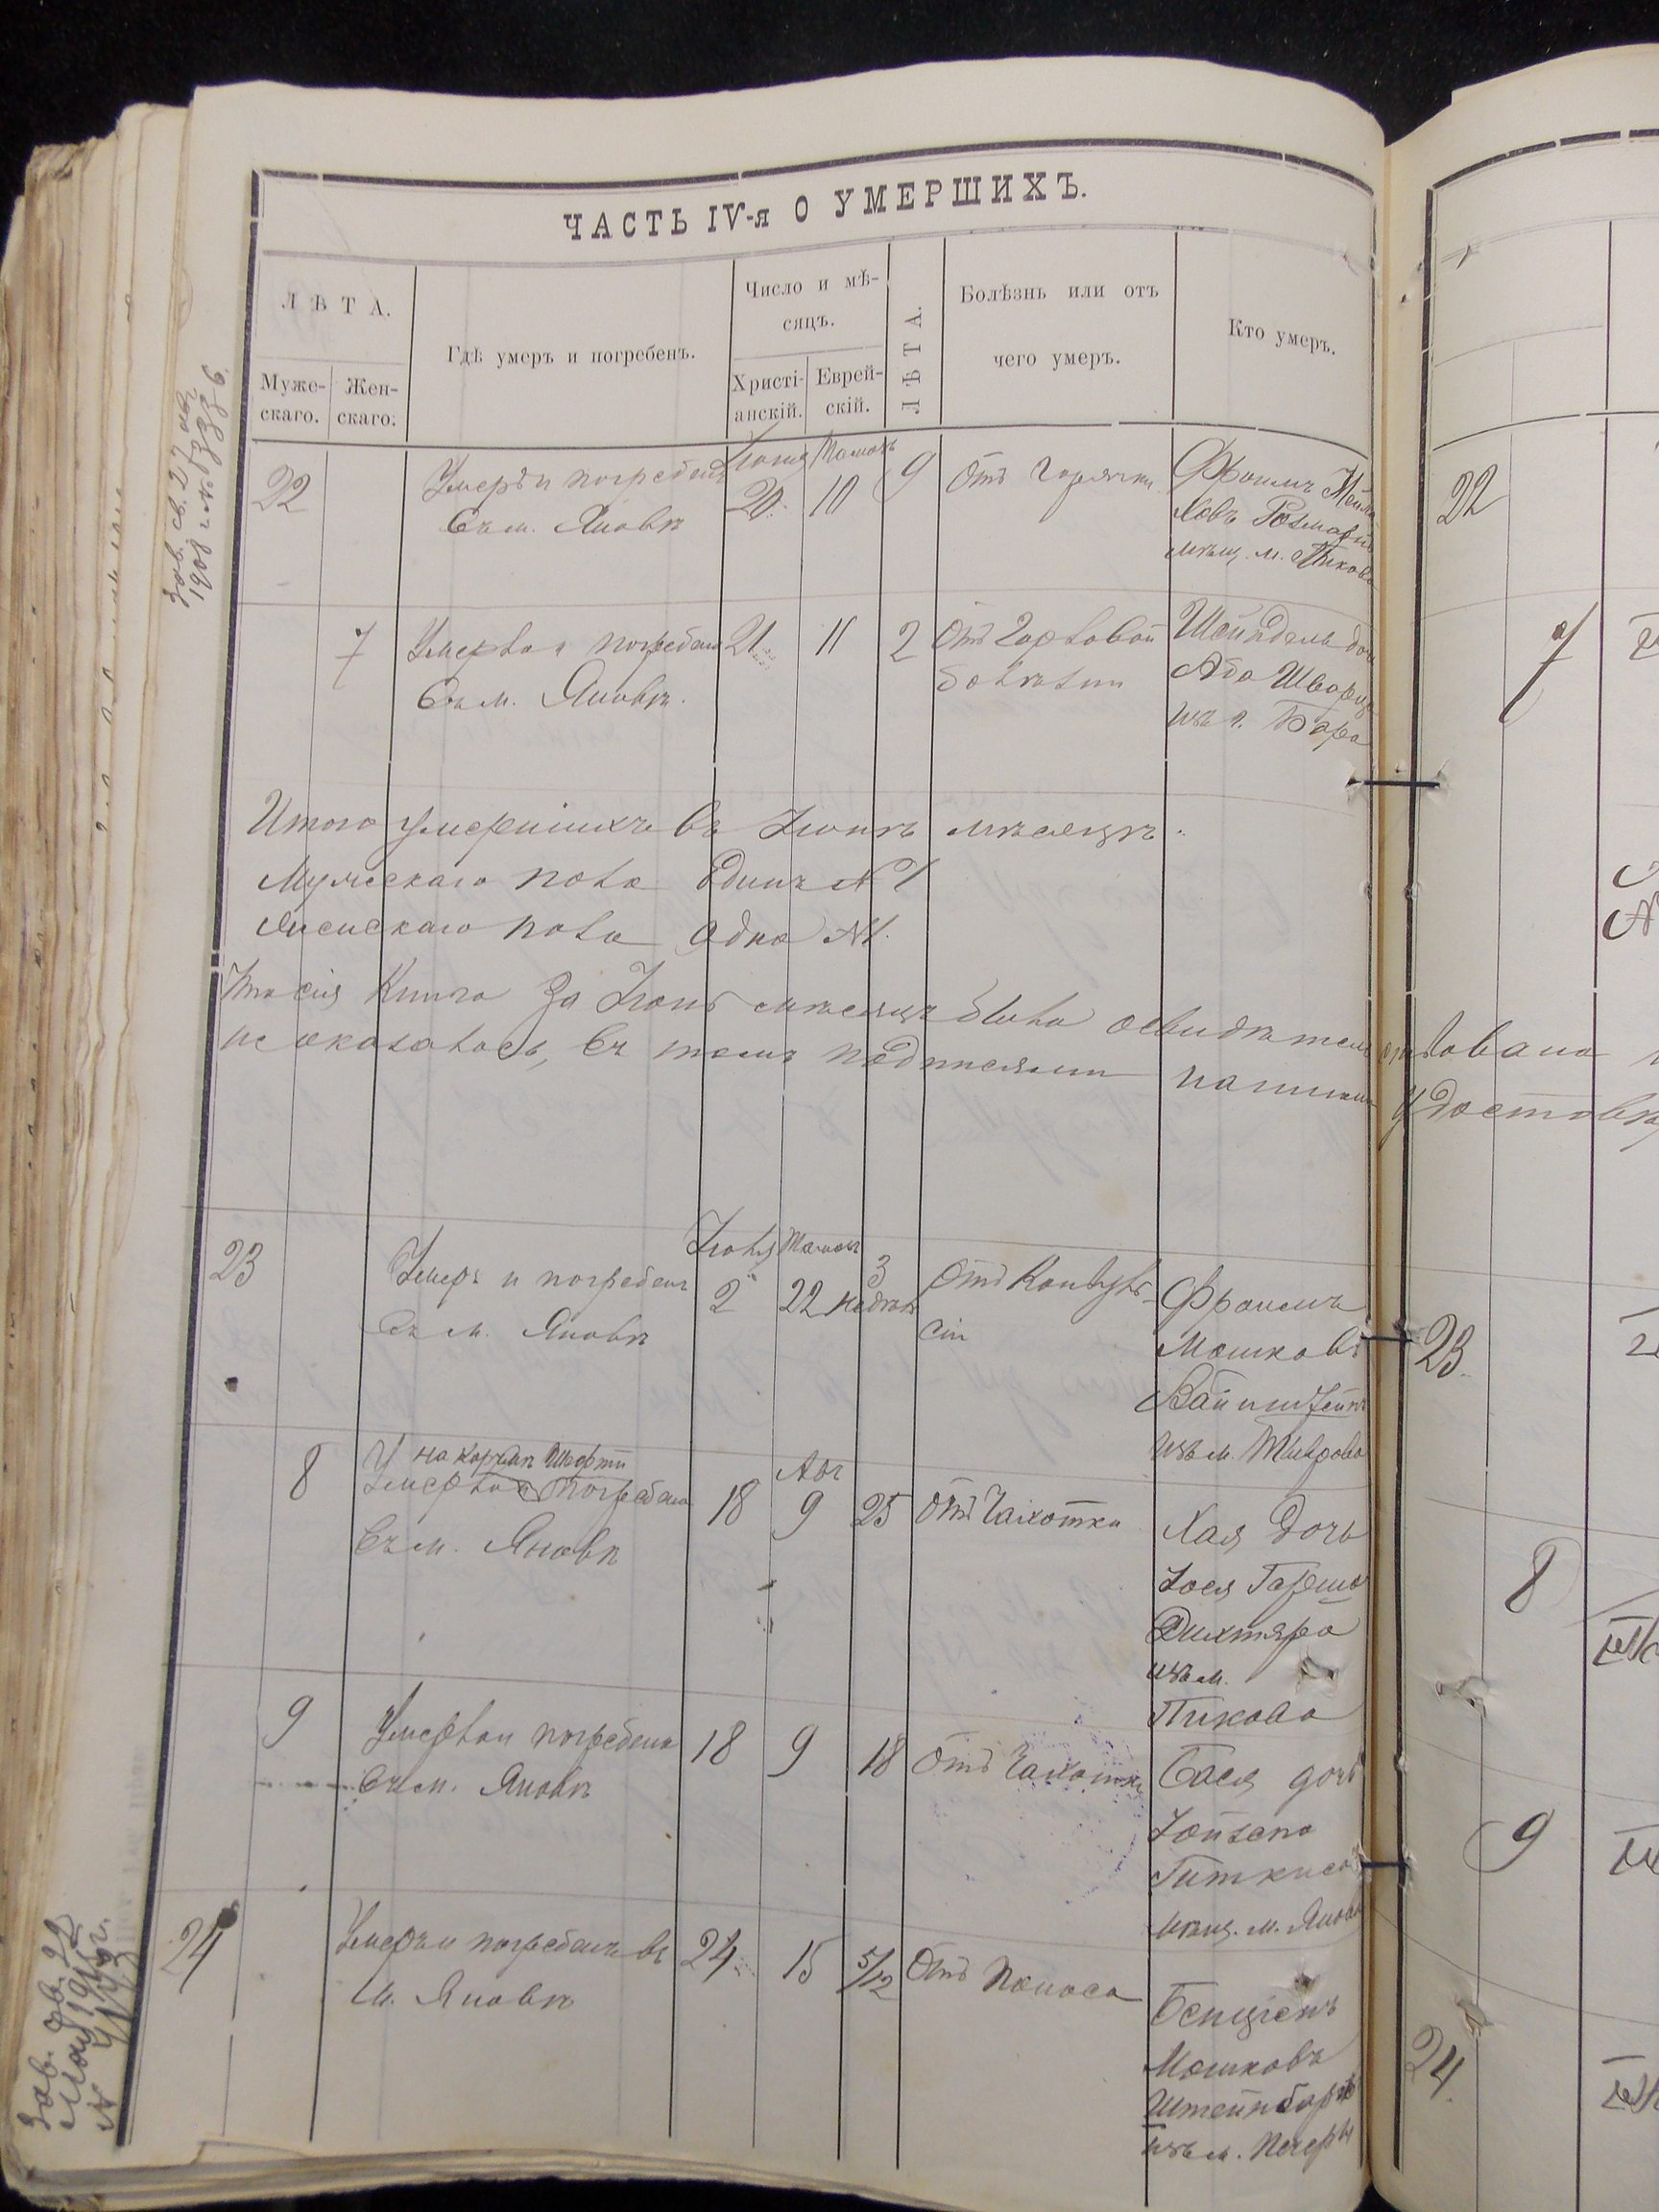 ЧАСТЬ IV-я О УМЕРШИХЪ.
ЛѢТА.
Муже-
скаго.
Жен-
скаго.
Гдѣ умеръ и погребенъ.
Число и мѣ-
сяцъ.
Христі-
анскій.
Еврей-
скій.
ЛѢТА.
Болѣзнь или отъ
чего умеръ.
Кто умеръ.
22
Умеръ и погребенъ
Въ м. Яновѣ
Іюня
20
Тамозъ
10
9
Отъ Горячки
Фроимъ
мѣщ. м. Пикова
22
7
Умерла и погребена
Въ м. Яновѣ.
21
11
2
Отъ Горловой
болѣзни
Шейндель дочь
Аба Шварца
изъ г. Бара
7
Итого умершихъ въ Іюнѣ мѣсяцѣ.
Мужескаго пола Одинъ № 1
Женскаго пола Одна № 1.
сія Книга За Іюнь мѣсяцъ была освидѣтельствована
не оказалось, въ томъ подписями нашими удостовѣ
23
Умеръ и погребенъ
Въ м. Яновѣ
Іюля
2
Тамозъ
22
3
недѣль
Отъ Конвуль-
сіи
Фроимъ
Мошковъ
Вайнштейнъ
изъ м.
23.
8
Умерла и погребена
Въ м. Яновѣ
18
Авъ
9
25
Отъ Чахотки
Хая дочь
Іося Герша
Дихтяра
изъ м.
Пикова
8
9
Умерла и погребена
Въ м. Яновѣ
18
9
18
Отъ Чахотки
Бася дочь
Іойзепа
мѣщ. м. Янова
9
24
Умеръ и погребенъ въ
м. Яновѣ
24
15
5/12
Отъ Поноса
Бенціонъ
Мошковъ
Штейнбергъ
изъ м. Печеры
24.